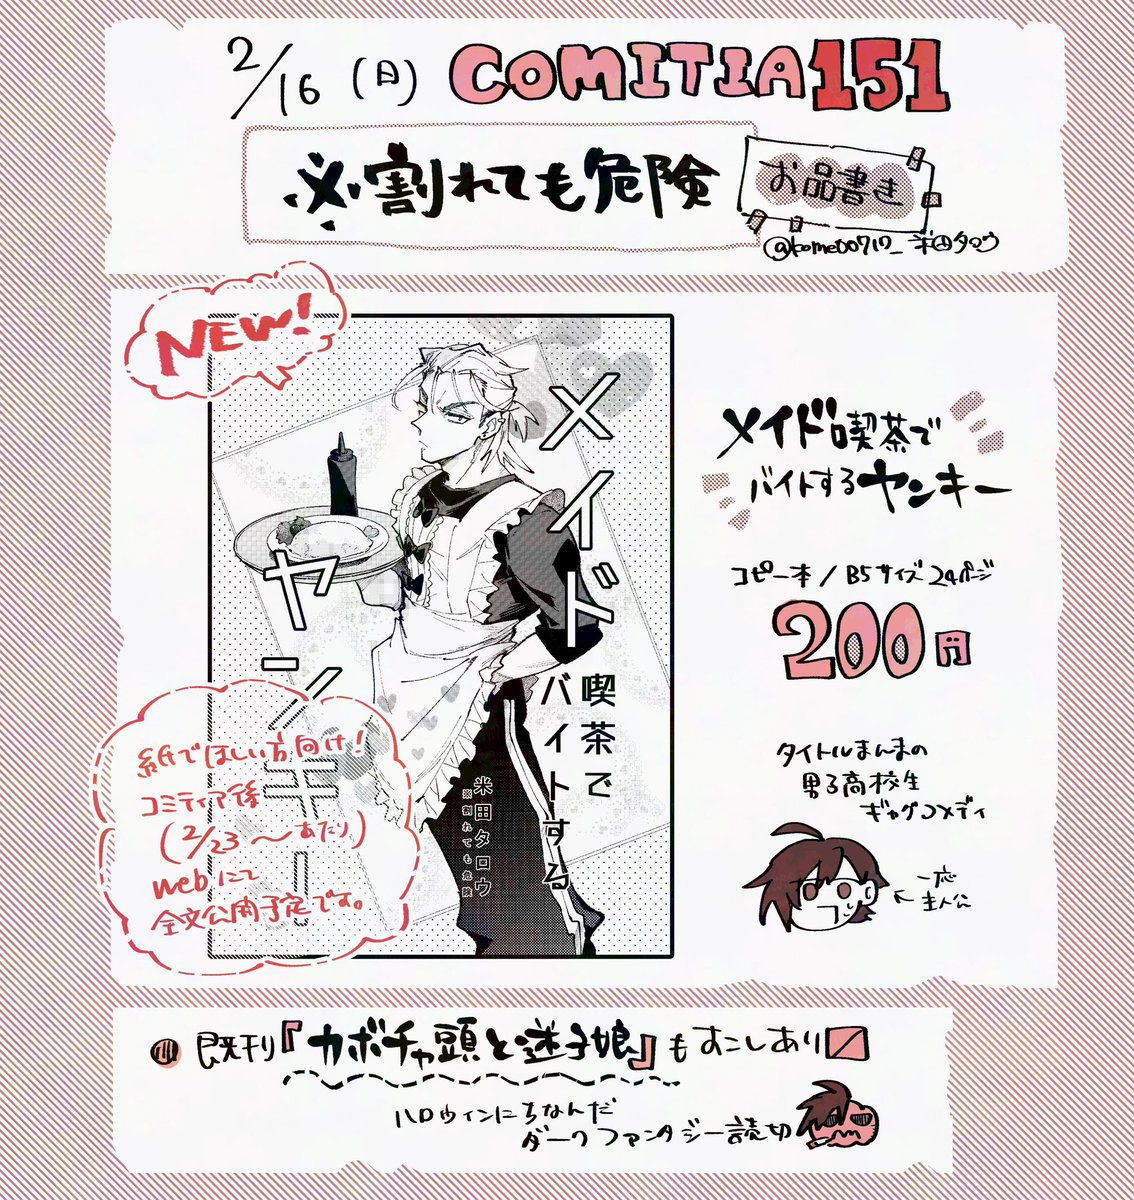 2/16(日) COMITIA151
※割れても危険
お品書き
@kome00717_ 米田タロウ
NEW!
メイド喫茶で
バイトする
ヤンキー
米田タロウ
※割れても危険
紙でほしい方向け!
コミティア後
(2/23〜あたり)
webにて
全文公開予定です。
メイド喫茶で
バイトするヤンキー
コピー本/B5サイズ24ページ
200円
タイトルまんまの
男子高校生
ギャグコメディ
一応
主人公
既刊『カボチャ頭と迷子娘』もすこしあり〼
ハロウィンにちなんだ
ダークファンタジー読切